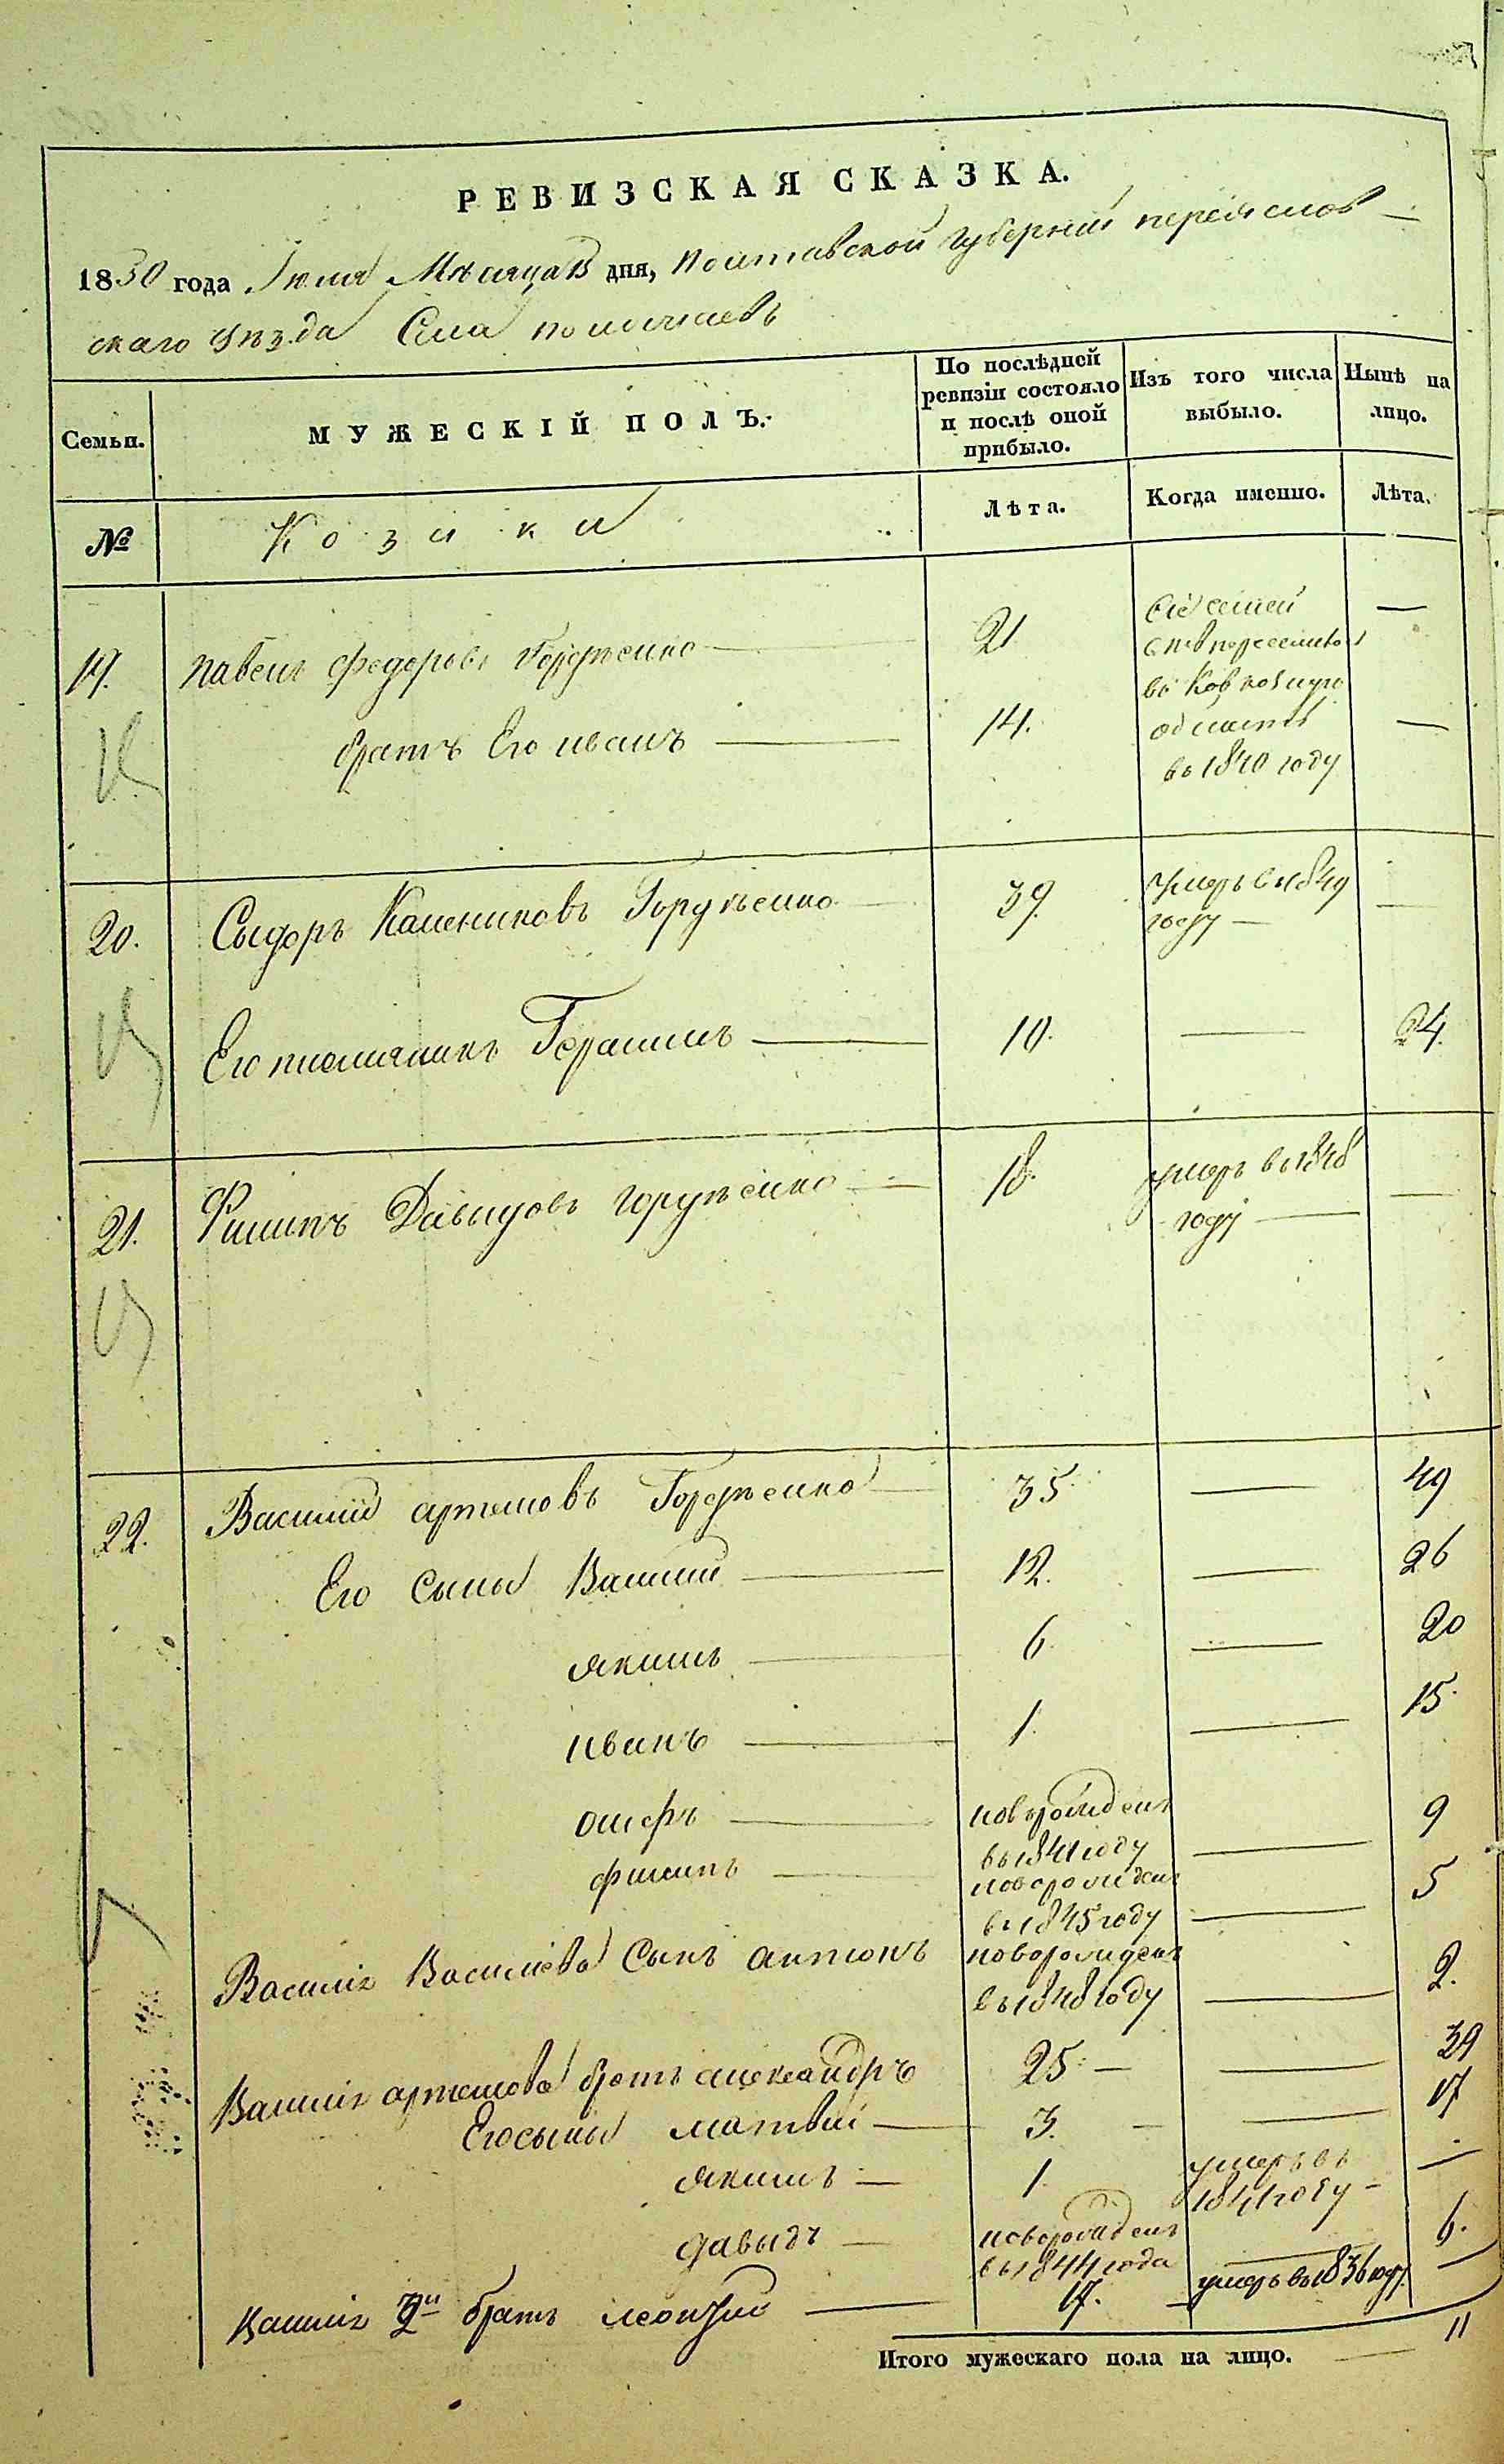 РЕВИЗСКАЯ СКАЗКА.
1850 года Июля Мѣсяца дня, Полтавской Губерніи переяслов
скаго уѣзда Села
Семьи.
МУЖЕСКІЙ ПОЛЪ.
По послѣдней ревизіи состояло и послѣ оной прибыло.
Изъ того числа выбыло.
Нынѣ на лицо.
№
Козаки
Лѣта.
Когда именно.
Лѣта.
19. павелъ федоровъ 21 —
въ Кавказкую
братъ Его иванъ — 14. область —
въ 1840 году
20. Сыдоръ Горуженко 39. умеръ в 1849 —
году —
Его племянникъ Герасимъ — 10. — 24.
21. Филипъ Давыдовъ горуженко — 18. умеръ в 1848 —
году —
22. Василій артемовъ Горуженко 35. — 49
Его Сыны Василій — 12. — 26
якимъ — 6. — 20
иванъ — 1. — 15.
— новорожденъ
въ 1841 году — 9
филипъ — новорожденъ
въ 1845 году — 5
Василія Василіева Сынъ антонъ новорожденъ
въ 1848 году — 2.
Василія артемова братъ александръ 25. — — 39
Его сыны матвѣй — 3. — — 17
якимъ — 1. умеръ въ —
1841 году —
давыдъ — новорожденъ
въ 1844 года — 6.
Василія 2й братъ леонтій — 17. — умеръ въ 1836 году. —
Итого мужескаго пола на лицо. — 11